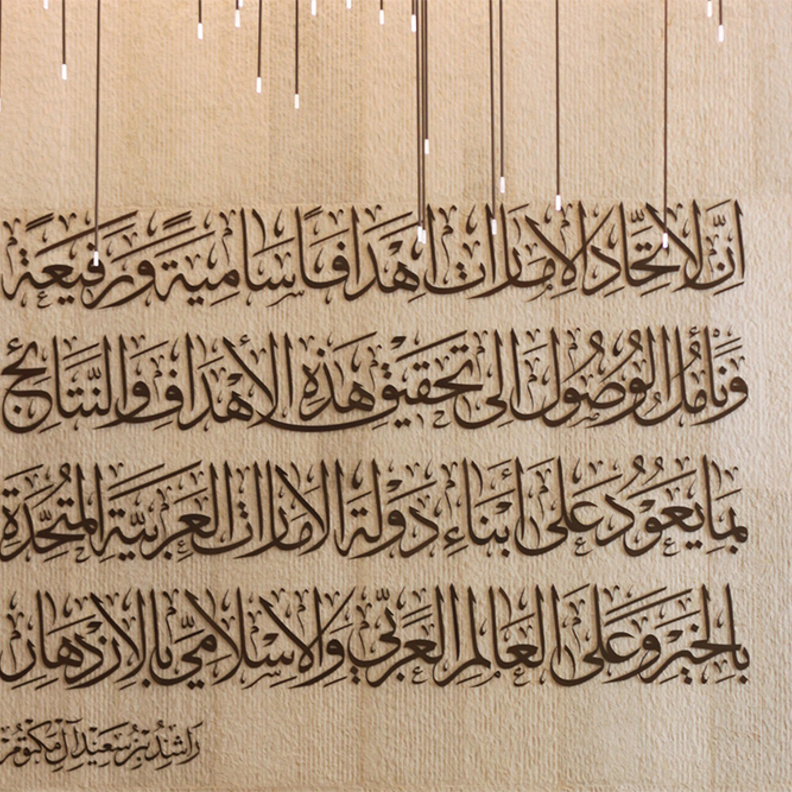 إنّ لاتّحاد الامارات اهدافاً سامية ورفيعة
ونأمل الوصول الى تحقيق هذه الأهداف والنتائج
بما يعود على أبناء دولة الامارات العربيّة المتحدة
بالخير وعلى العالم العربيّ والاسلاميّ بالازدهار
راشد بن سعيد آل مكتوم